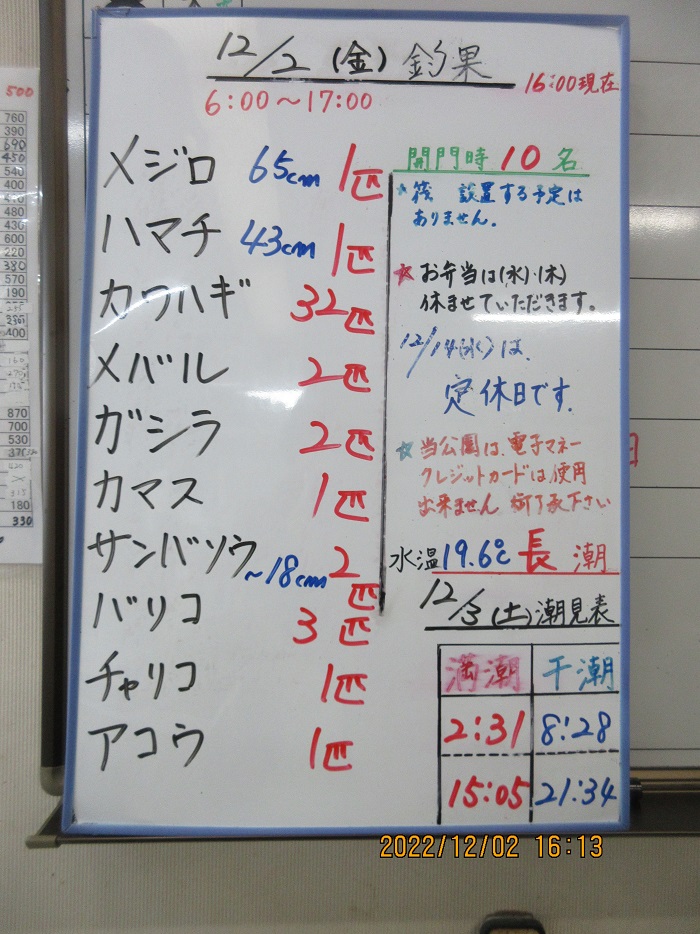 12/2 (金) 釣果
16:00現在
6:00～17:00
メジロ 65cm 1匹
ハマチ 43cm 1匹
カワハギ 32匹
メバル 2匹
ガシラ 2匹
カマス 1匹
サンバソウ ~18cm 2匹
バリコ 3匹
チャリコ 1匹
アコウ 1匹
開門時 10名
☆筏 設置する予定は
ありません。
☆お弁当は(水)・(木)
休ませていただきます。
12/14(水)は、
定休日です。
☆当公園は、電子マネー
クレジットカードは使用
出来ません 御了承下さい
水温19.6℃ 長潮
12/3(土)潮見表
満潮 干潮
2:31 8:28
15:05 21:34
2022/12/02 16:13
500
760
390
690
450
540
400
480
430
600
220
380
570
190
400
870
700
530
180
330